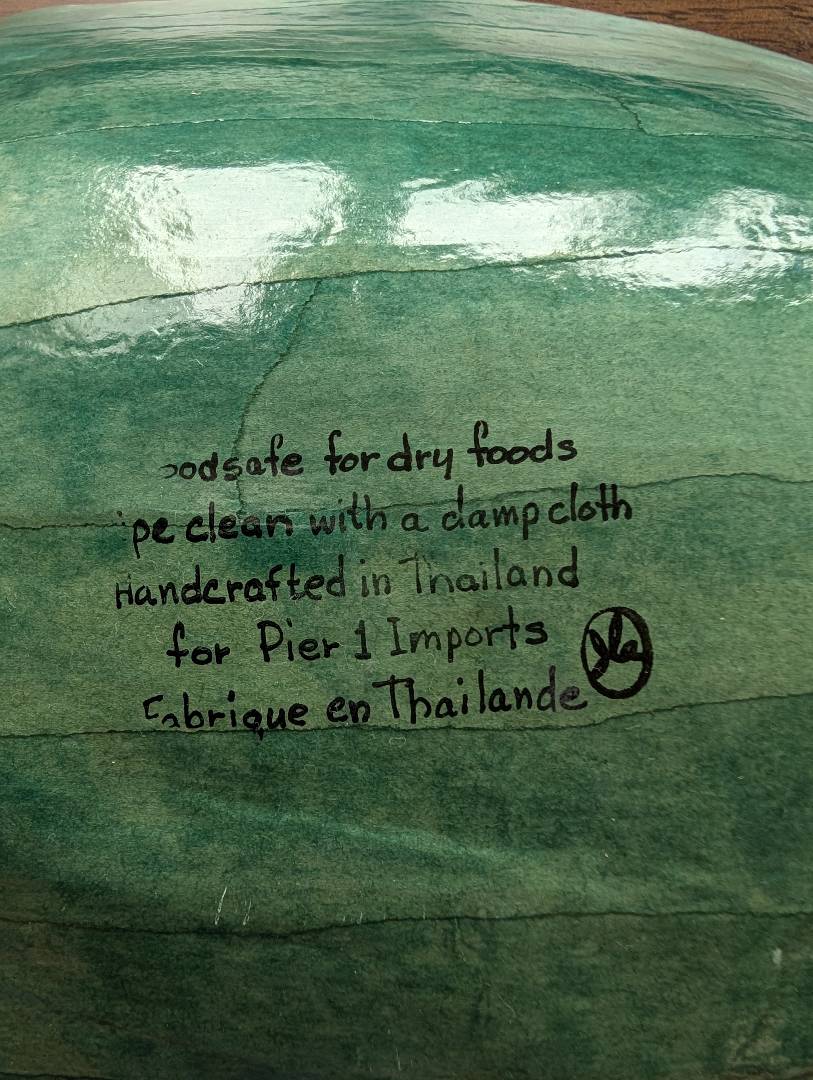 oodsafe for dry foods
pe clean with a damp cloth
Handcrafted in Thailand
for Pier 1 Imports
Fabrique en Thailande